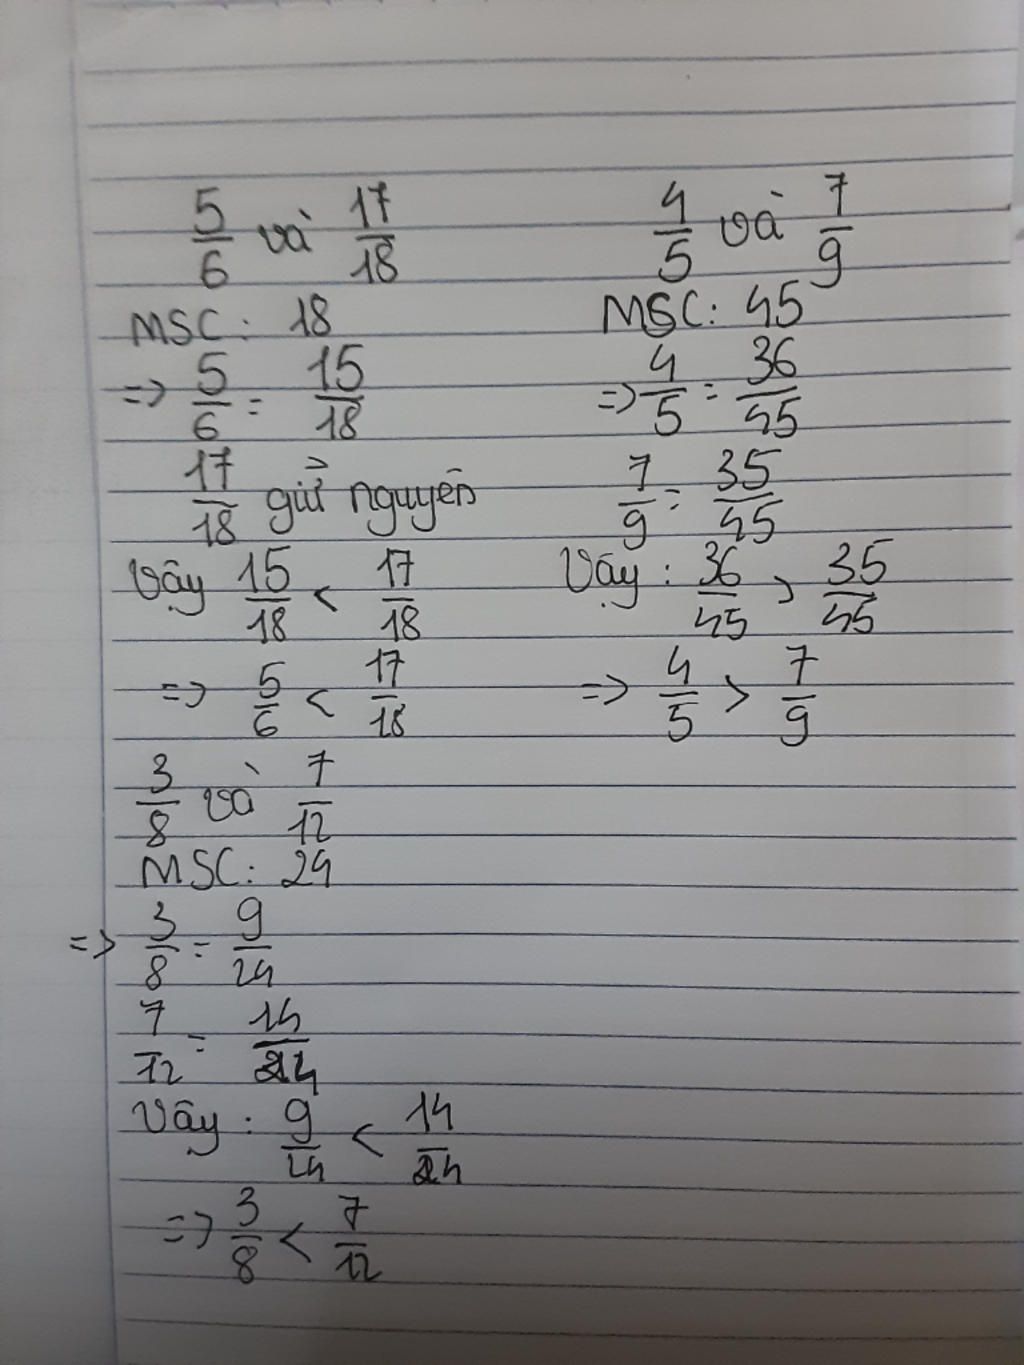 5/6 và 17/18
MSC: 18
=> 5/6 = 15/18
17/18 giử nguyên
Vậy 15/18 < 17/18
=> 5/6 < 17/18
4/5 và 7/9
MSC: 45
=> 4/5 = 36/45
7/9 = 35/45
Vậy: 36/45 > 35/45
=> 4/5 > 7/9
3/8 và 7/12
MSC: 24
=> 3/8 = 9/24
7/12 = 14/24
Vây: 9/24 < 14/24
=> 3/8 < 7/12